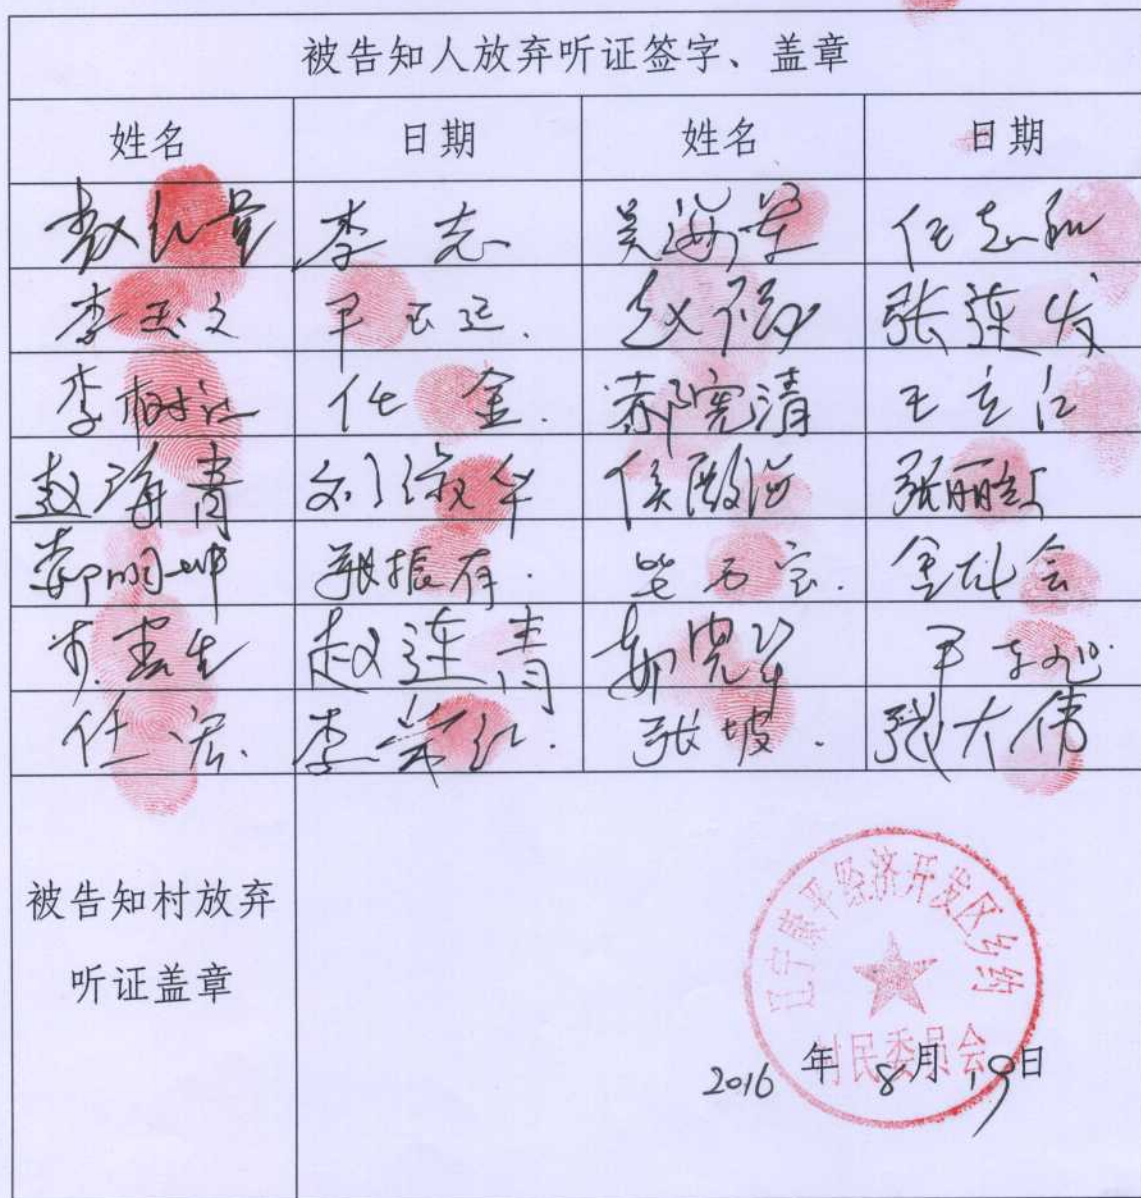 被告知人放弃听证签字、盖章
姓名 日期 姓名 日期
李志 吴海军 任志和
李玉文 尹玉廷. 赵福 张连发
李树江 任金. 郝宪清 王立江
赵海青 刘淑华 侯殿海 张丽红
郭明坤 张振有. 宝.
赵连青 郭宪军
任宏. 李荣红. 张坡. 张大伟
被告知村放弃
听证盖章
辽宁康平经济开发区乡约
村民委员会
2016年8月19日